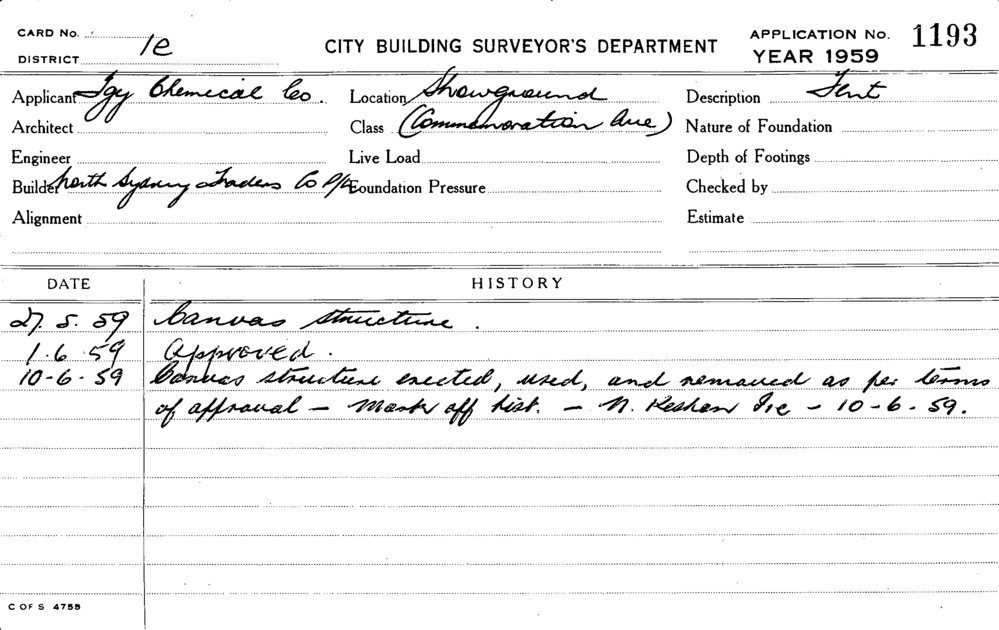 CARD No.
DISTRICT 1e
CITY BUILDING SURVEYOR'S DEPARTMENT
APPLICATION No. 1193
YEAR 1959
Applicant Chemical Co. Location Showground Description Tent
Architect Class (Commemoration Ave) Nature of Foundation
Engineer Live Load Depth of Footings
Builder North Sydney Traders Co P/L Foundation Pressure Checked by
Alignment Estimate
DATE HISTORY
27. 5. 59 Canvas structure.
1. 6. 59 Approved.
10-6-59 Canvas structure erected, used, and removed as per terms
of approval – Mark off list. – N. – 10-6-59.
C OF S 4755